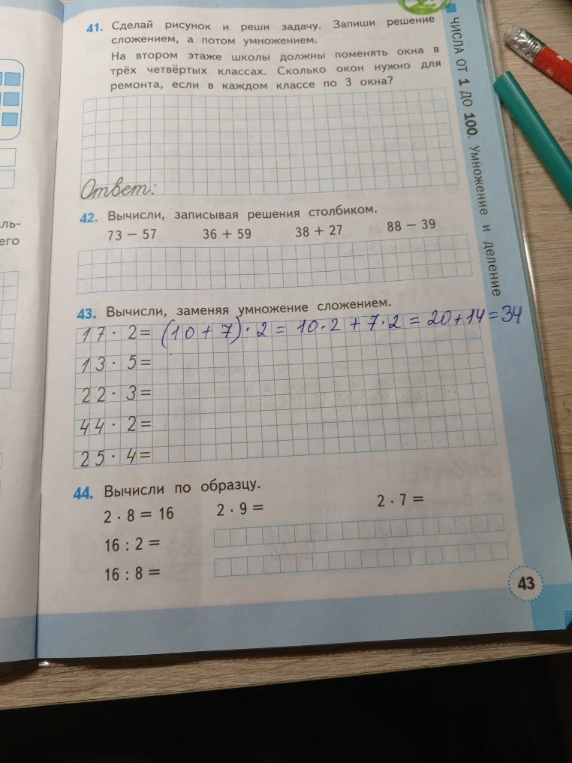 41. Сделай рисунок и реши задачу. Запиши решение
сложением, а потом умножением.
На втором этаже школы должны поменять окна в
трёх четвёртых классах. Сколько окон нужно для
ремонта, если в каждом классе по 3 окна?
Ответ:
42. Вычисли, записывая решения столбиком.
73 − 57 36 + 59 38 + 27 88 − 39
43. Вычисли, заменяя умножение сложением.
17 · 2 = (10 + 7) · 2 = 10 · 2 + 7 · 2 = 20 + 14 = 34
13 · 5 =
22 · 3 =
44 · 2 =
25 · 4 =
44. Вычисли по образцу.
2 · 8 = 16 2 · 9 = 2 · 7 =
16 : 2 =
16 : 8 =
43
ЧИСЛА ОТ 1 ДО 100. Умножение и деление
ль-
его